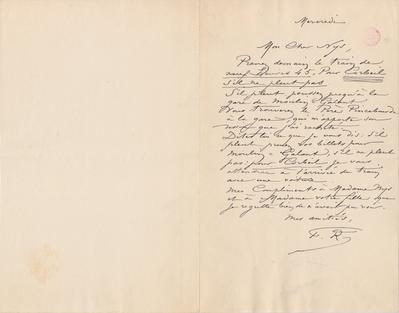 Mercredi
Mon Cher Nys,
Prenez demain le train de
neuf heures 45, Pour Corbeil
s'il ne pleut pas
S'il pleut poussez jusqu'à la
gare de Moulin Galant
Vous trouverez le Père
à la gare, qui m'apporte un
que j'ai
ce que je vous dis: s'il
pleut, prenez vos billets pour
Moulin-Galant, s'il ne pleut
pas: pour Corbeil je vous
attendrai à l'arrivée du train
avec une voiture
Mes Compliments à Madame Nys
et à Madame votre fille que
je regrette bien de n'avoir pu voir.
Mes amitiés,
F. R.